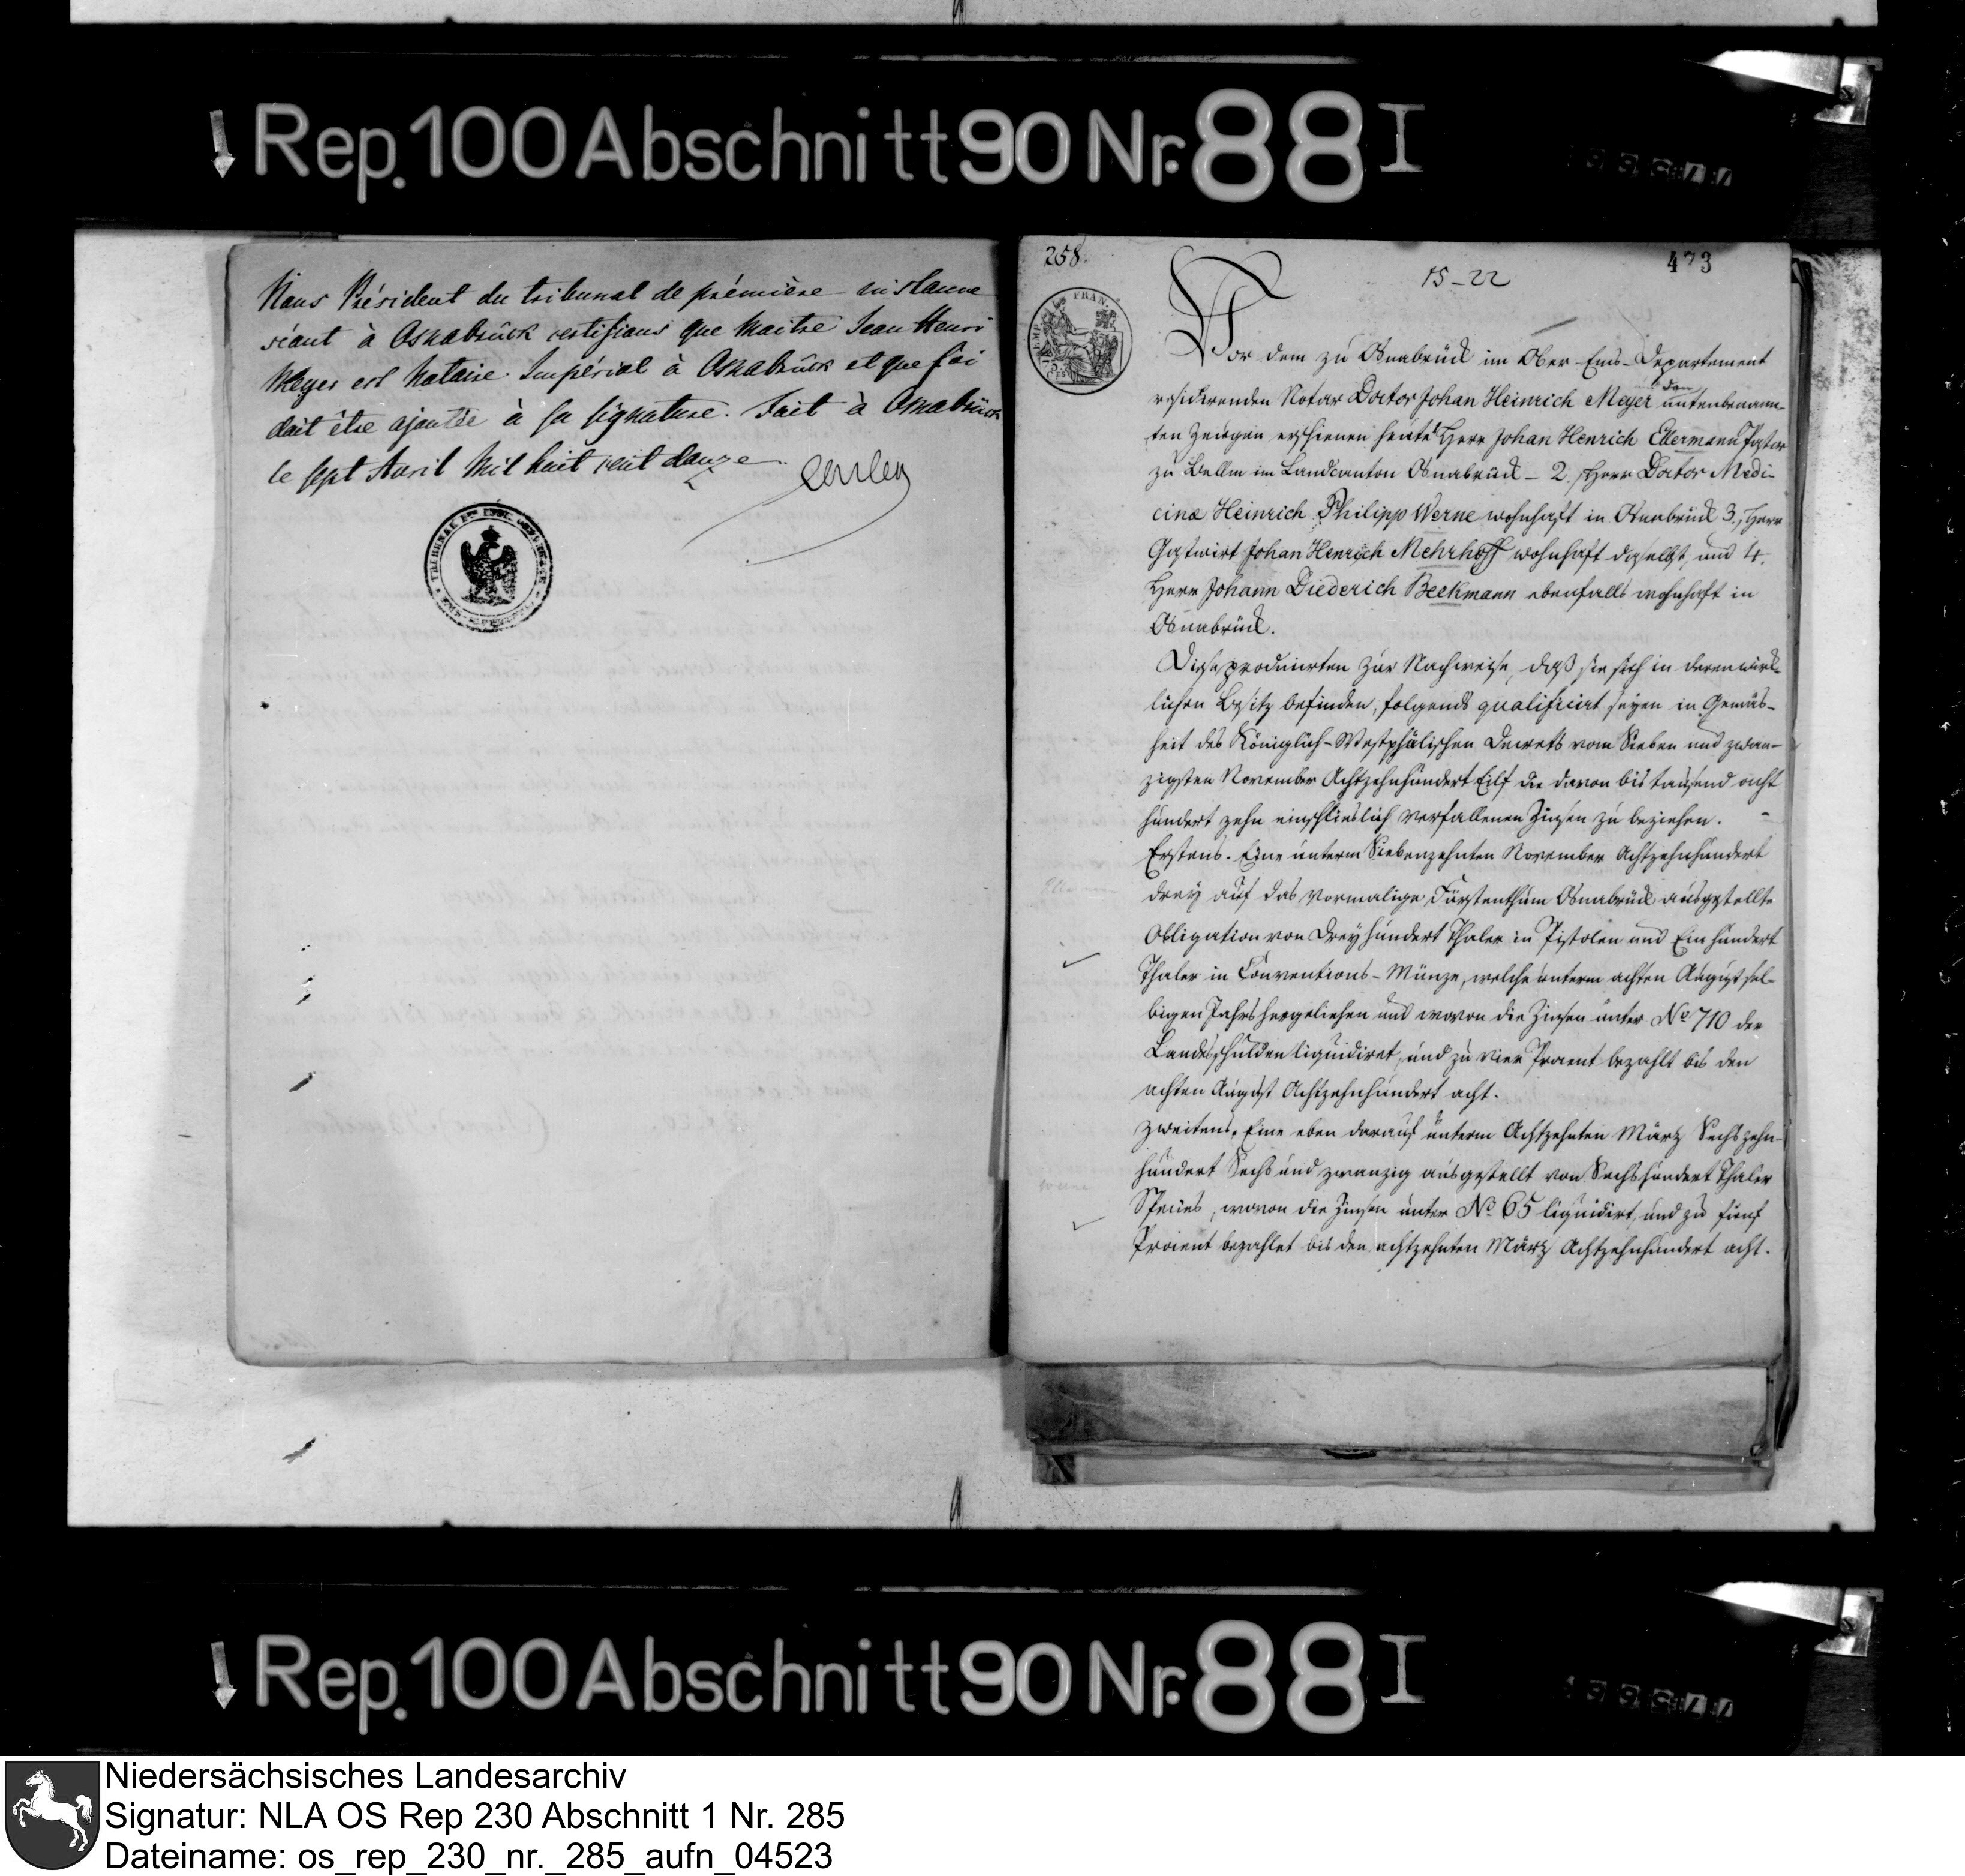 Rep. 100 Abschnitt 90 Nr. 88 I
Nous Président du tribunal de prémière instance
séant à Osnabrück certifions que Maitre Jean Henri
Meyer est Notaire Impérial à Osnabrück et que foi
doit être ajoutée à sa signature. Fait à Osnabrück
le sept Avril Mil huit cent douze
258.
473
15-22
Vor dem zu Osnabrück im Ober-Ems-Departement
residirenden Notar Doctor Johan Heinrich Meyer und den untenbenann-
ten Zeugen erschienen heute Herr Johan Henrich Ellermann Pastor
zu Bellm im Landcanton Osnabrück – 2. Herr Doctor Medi-
cinæ Heinrich Philipp Werne wohnhaft in Osnabrück 3., Herr
Gastwirt Johan Henrich Mehrhoff wohnhaft daselbst, und 4.
Herr Johann Diederich Beckmann ebenfalls wohnhaft in
Osnabrück.
Diese producirten zur Nachweise, daß sie sich in deren wirk-
lichen Besitz befinden, folgends qualificirt seyen in Gemäs-
heit des Königlich-Westphälischen Decrets vom Sieben und zwan-
zigsten November Achtzehnhundert Eilf die davon bis tausend acht
hundert zehn einschlieslich verfallenen Zinsen zu beziehen.
Erstens. Eine unterm Siebenzehnten November Achtzehnhundert
drey auf das vormalige Fürstenthum Osnabrück ausgestellte
Obligation von Dreyhundert Thaler in Pistolen und Einhundert
Thaler in Conventions-Münze, welche unterm achten August sel-
bigen Jahrs hergeliehen und wovon die Zinsen unter No 710 der
Landesschulden liquidiret, und zu vier Procent bezahlt bis den
achten August Achtzehnhundert acht.
Zweitens. Eine eben darauf unterm Achtzehnten März Sechszehn-
hundert Sechs und zwanzig ausgestellt von Sechshundert Thaler
Species, wovon die Zinsen unter No 65 liquidirt, und zu fünf
Procent bezahlet bis den achtzehnten März Achtzehnhundert acht.
Rep. 100 Abschnitt 90 Nr. 88 I
Niedersächsisches Landesarchiv
Signatur: NLA OS Rep 230 Abschnitt 1 Nr. 285
Dateiname: os_rep_230_nr._285_aufn_04523